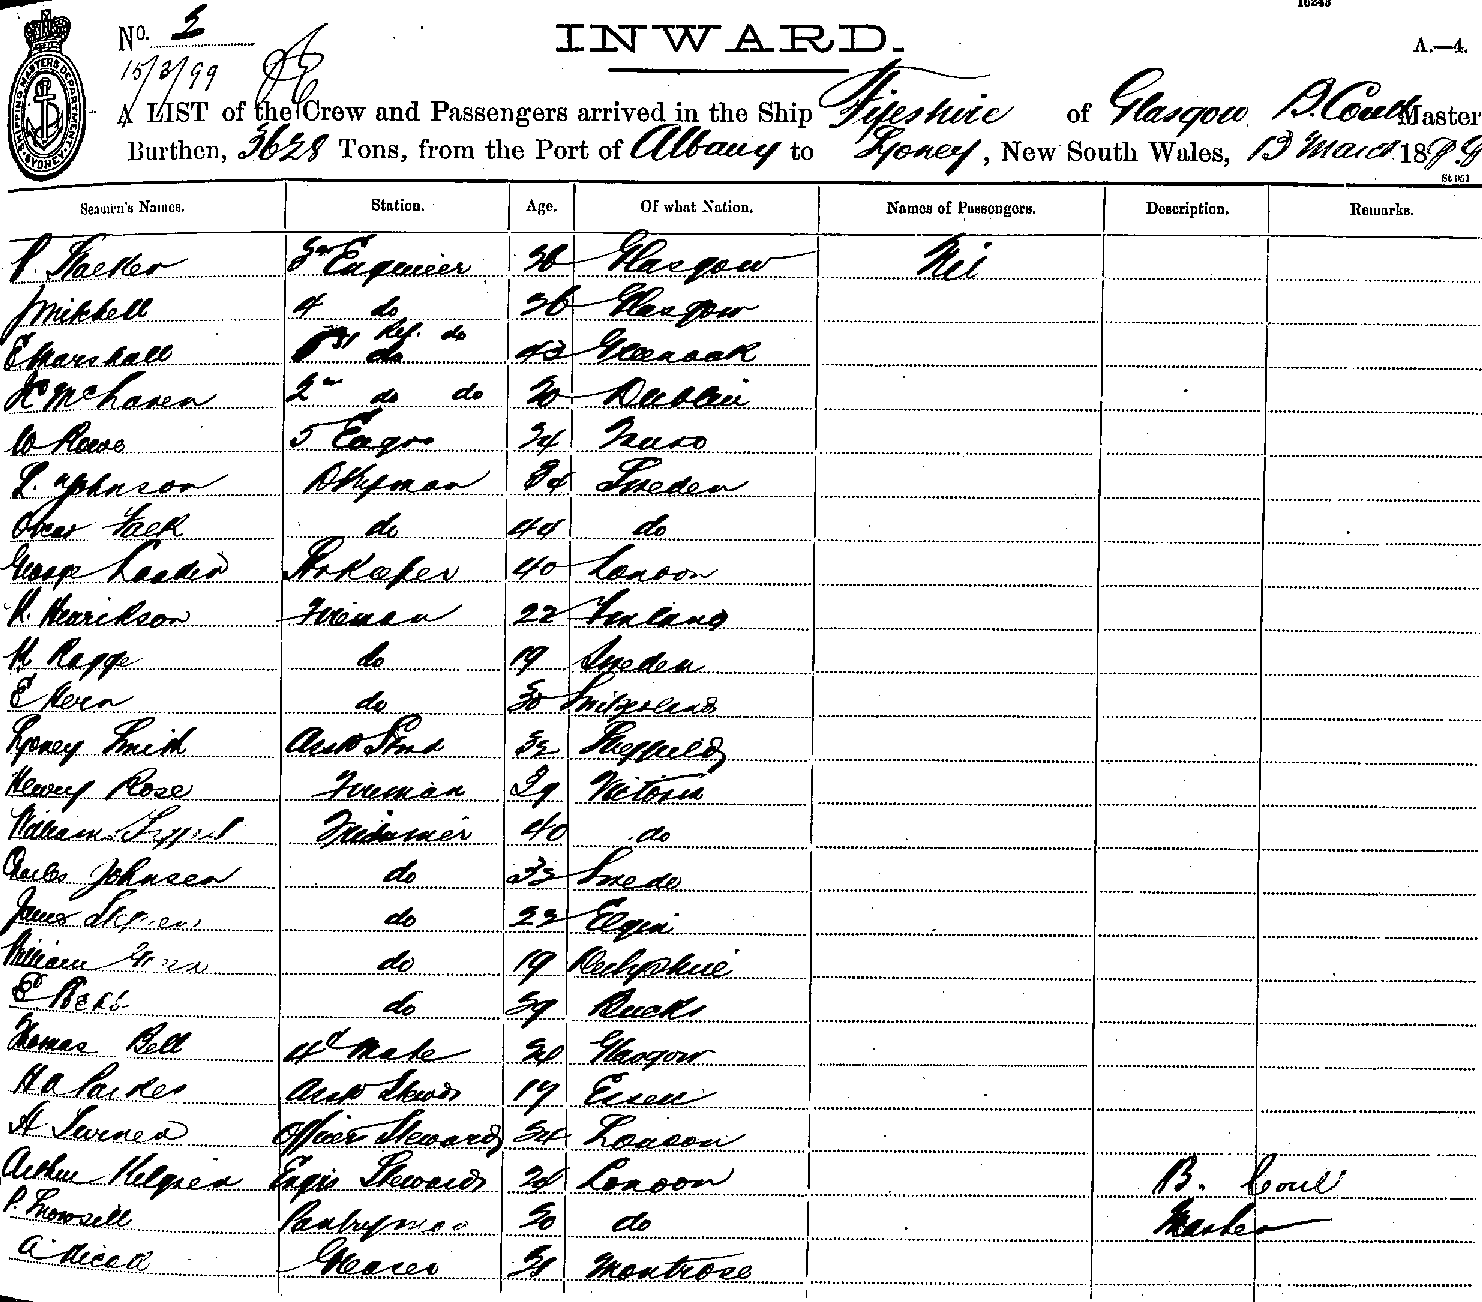 16243
No. 2
15/3/99
INWARD.
A.—4.
A LIST of the Crew and Passengers arrived in the Ship Fifeshire of Glasgow B. Coull Master
Burthen, 3628 Tons, from the Port of Albany to Sydney, New South Wales, 13 March 1899
St 951
Seamen's Names. Station. Age. Of what Nation. Names of Passengers. Description. Remarks.
P. 3rd Engineer Glasgow Nil
J Mitchell 4 do 36 Glasgow
E Marshall 1st Ref. do do 43 Greenock
McLaren 2nd do do 30 Dublin
W Rowe 5 Engr 24 Truro
Johnson Dkyman 34 Sweden
Oscar do 44 do
George Strkeeper 40 London
K. Henrikson Fireman 22 Finland
M Rappe do 19 Sweden
E Kern do 30 Switzerland
Sydney Smith Asst Stwd 32 Sheffield
Henry Rose Fireman 29 Victoria
William Trimmer 40 do
Charles Johnsen do 33 Swede
James do 22 Elgin
William do 19 Derbyshire
E do 39 Bucks
Thomas Bell 4th Mate Glasgow
H A Parkes Asst Steward 19 Essex
A Turner Officers Steward 24 London
Arthur Engrs Steward London B. Coull
P. Snowsell Pantryman 30 do Master
A Nicoll Greaser Montrose